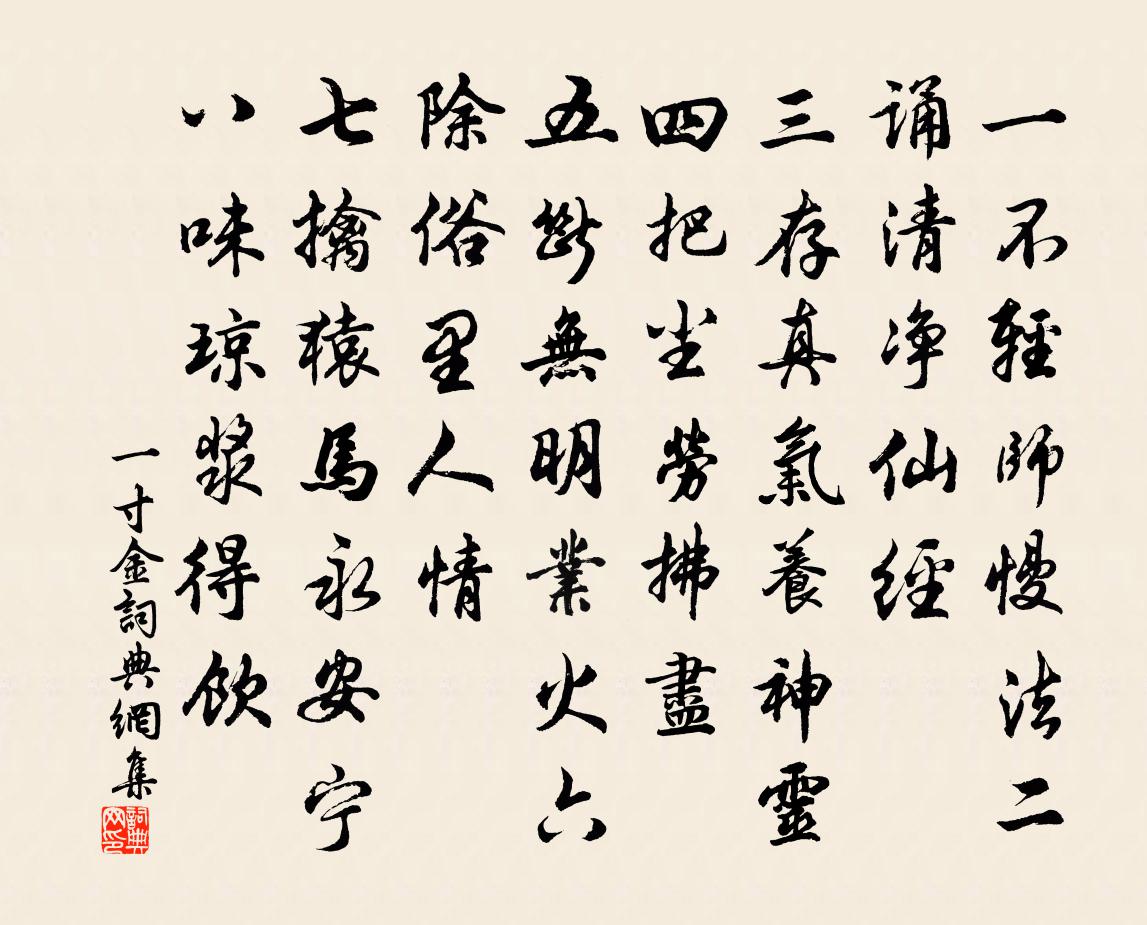 一不輕師慢法二
誦清净仙經
三存真氣養神靈
四把尘勞拂盡
五斷無明業火六
除俗里人情
七擒猿馬永安宁
八味琼漿得飲
一寸金詞典網集
詞典网印